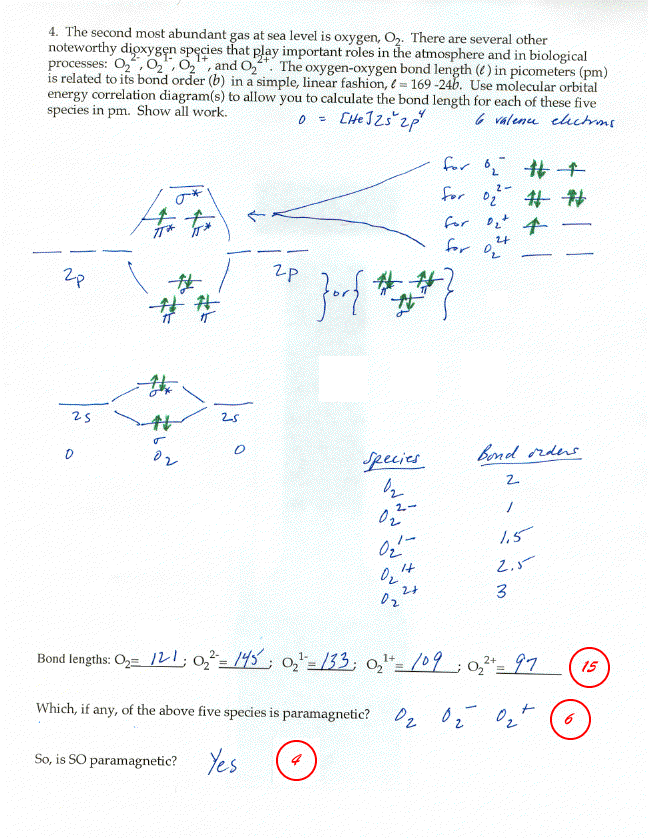 4. The second most abundant gas at sea level is oxygen, O₂. There are several other
noteworthy dioxygen species that play important roles in the atmosphere and in biological
processes: O₂²⁻, O₂¹⁻, O₂¹⁺, and O₂²⁺. The oxygen-oxygen bond length (ℓ) in picometers (pm)
is related to its bond order (b) in a simple, linear fashion, ℓ = 169 -24b. Use molecular orbital
energy correlation diagram(s) to allow you to calculate the bond length for each of these five
species in pm. Show all work.
O = [He]2s²2p⁴ 6 valence electrons
for O₂⁻
for O₂²⁻
for O₂⁺
for O₂²⁺
σ*
π* π*
2p 2p
σ
π π
} or { π π
σ }
σ*
2s 2s
σ
O O₂ O
Species Bond orders
O₂ 2
O₂²⁻ 1
O₂¹⁻ 1.5
O₂¹⁺ 2.5
O₂²⁺ 3
Bond lengths: O₂= 121; O₂²⁻= 145; O₂¹⁻= 133; O₂¹⁺= 109; O₂²⁺= 97 15
Which, if any, of the above five species is paramagnetic? O₂ O₂⁻ O₂⁺ 6
So, is SO paramagnetic? Yes 4